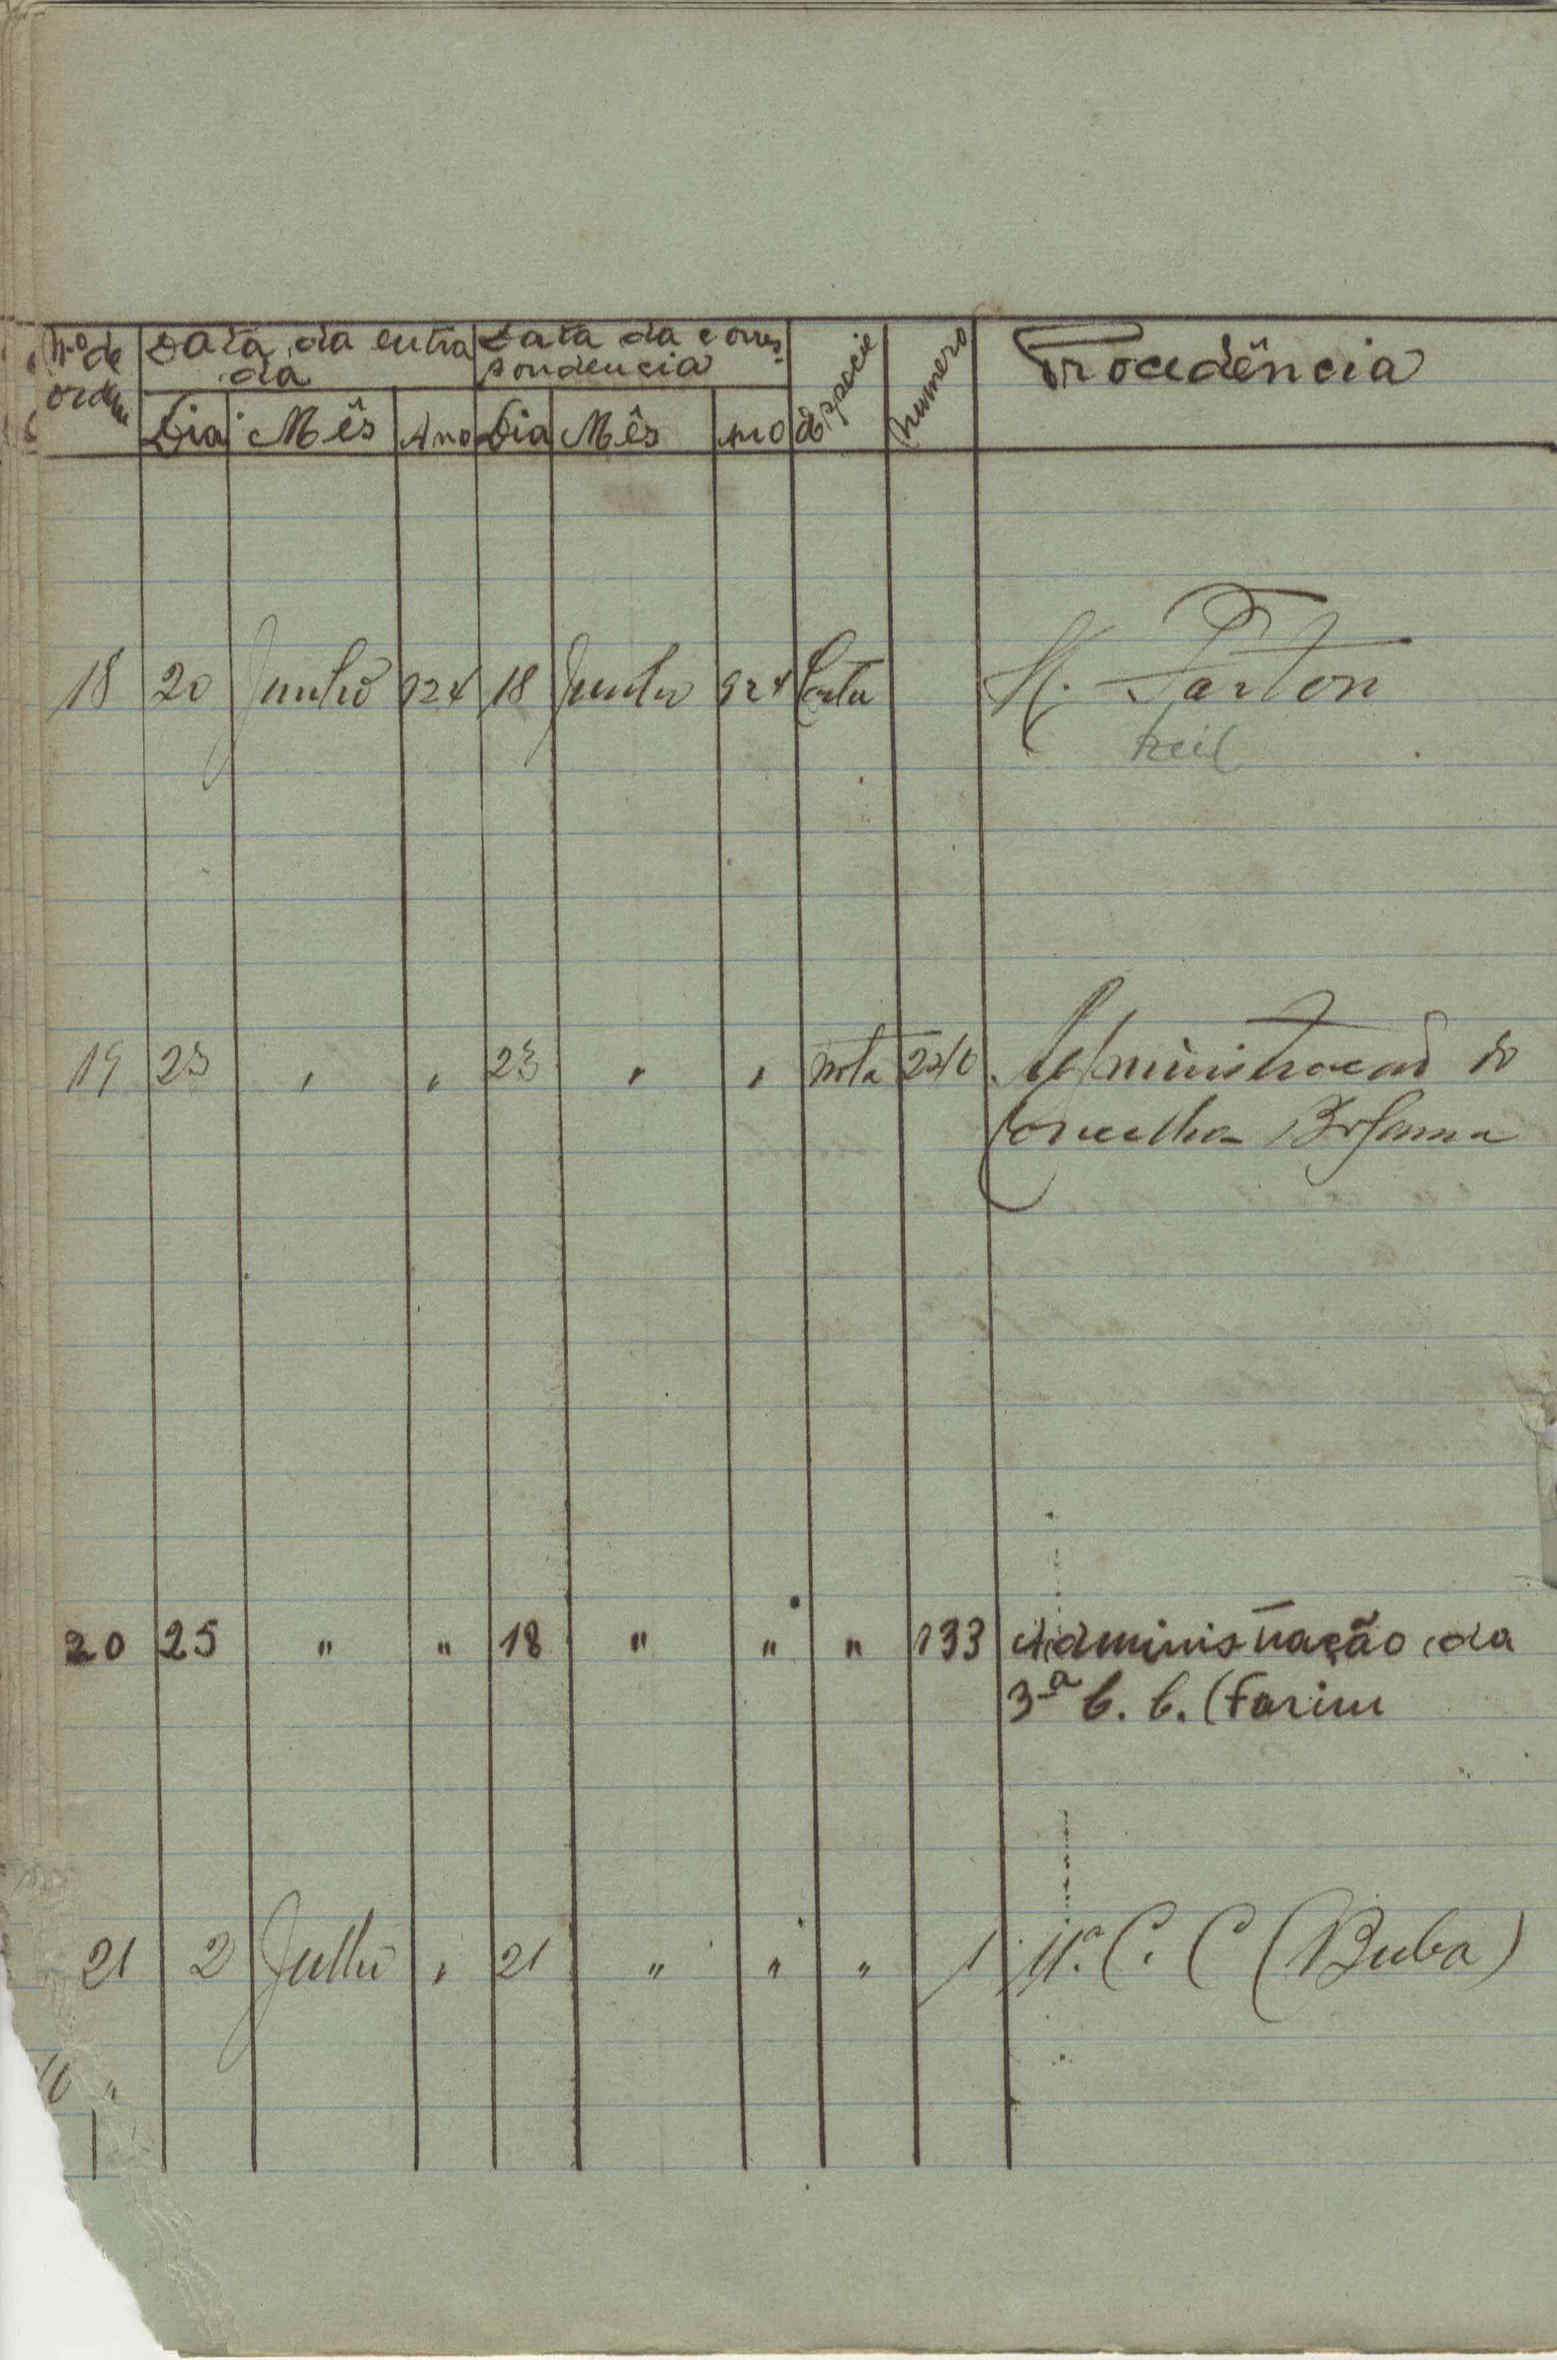 Nº de ordem Data da entra Data da corres- Espécie Numero Procedência
da pondencia
Dia Mês Ano Dia Mês Ano
18 20 Junho 924 18 Junho 924 Carta
19 23 " " 23 " " Nota Administração do
Concelho Bolama
20 25 " " 18 " " " 133 Administração da
3-ª C. C. (Farim
21 2 Julho " 21 " " " 1 C. C (Buba)